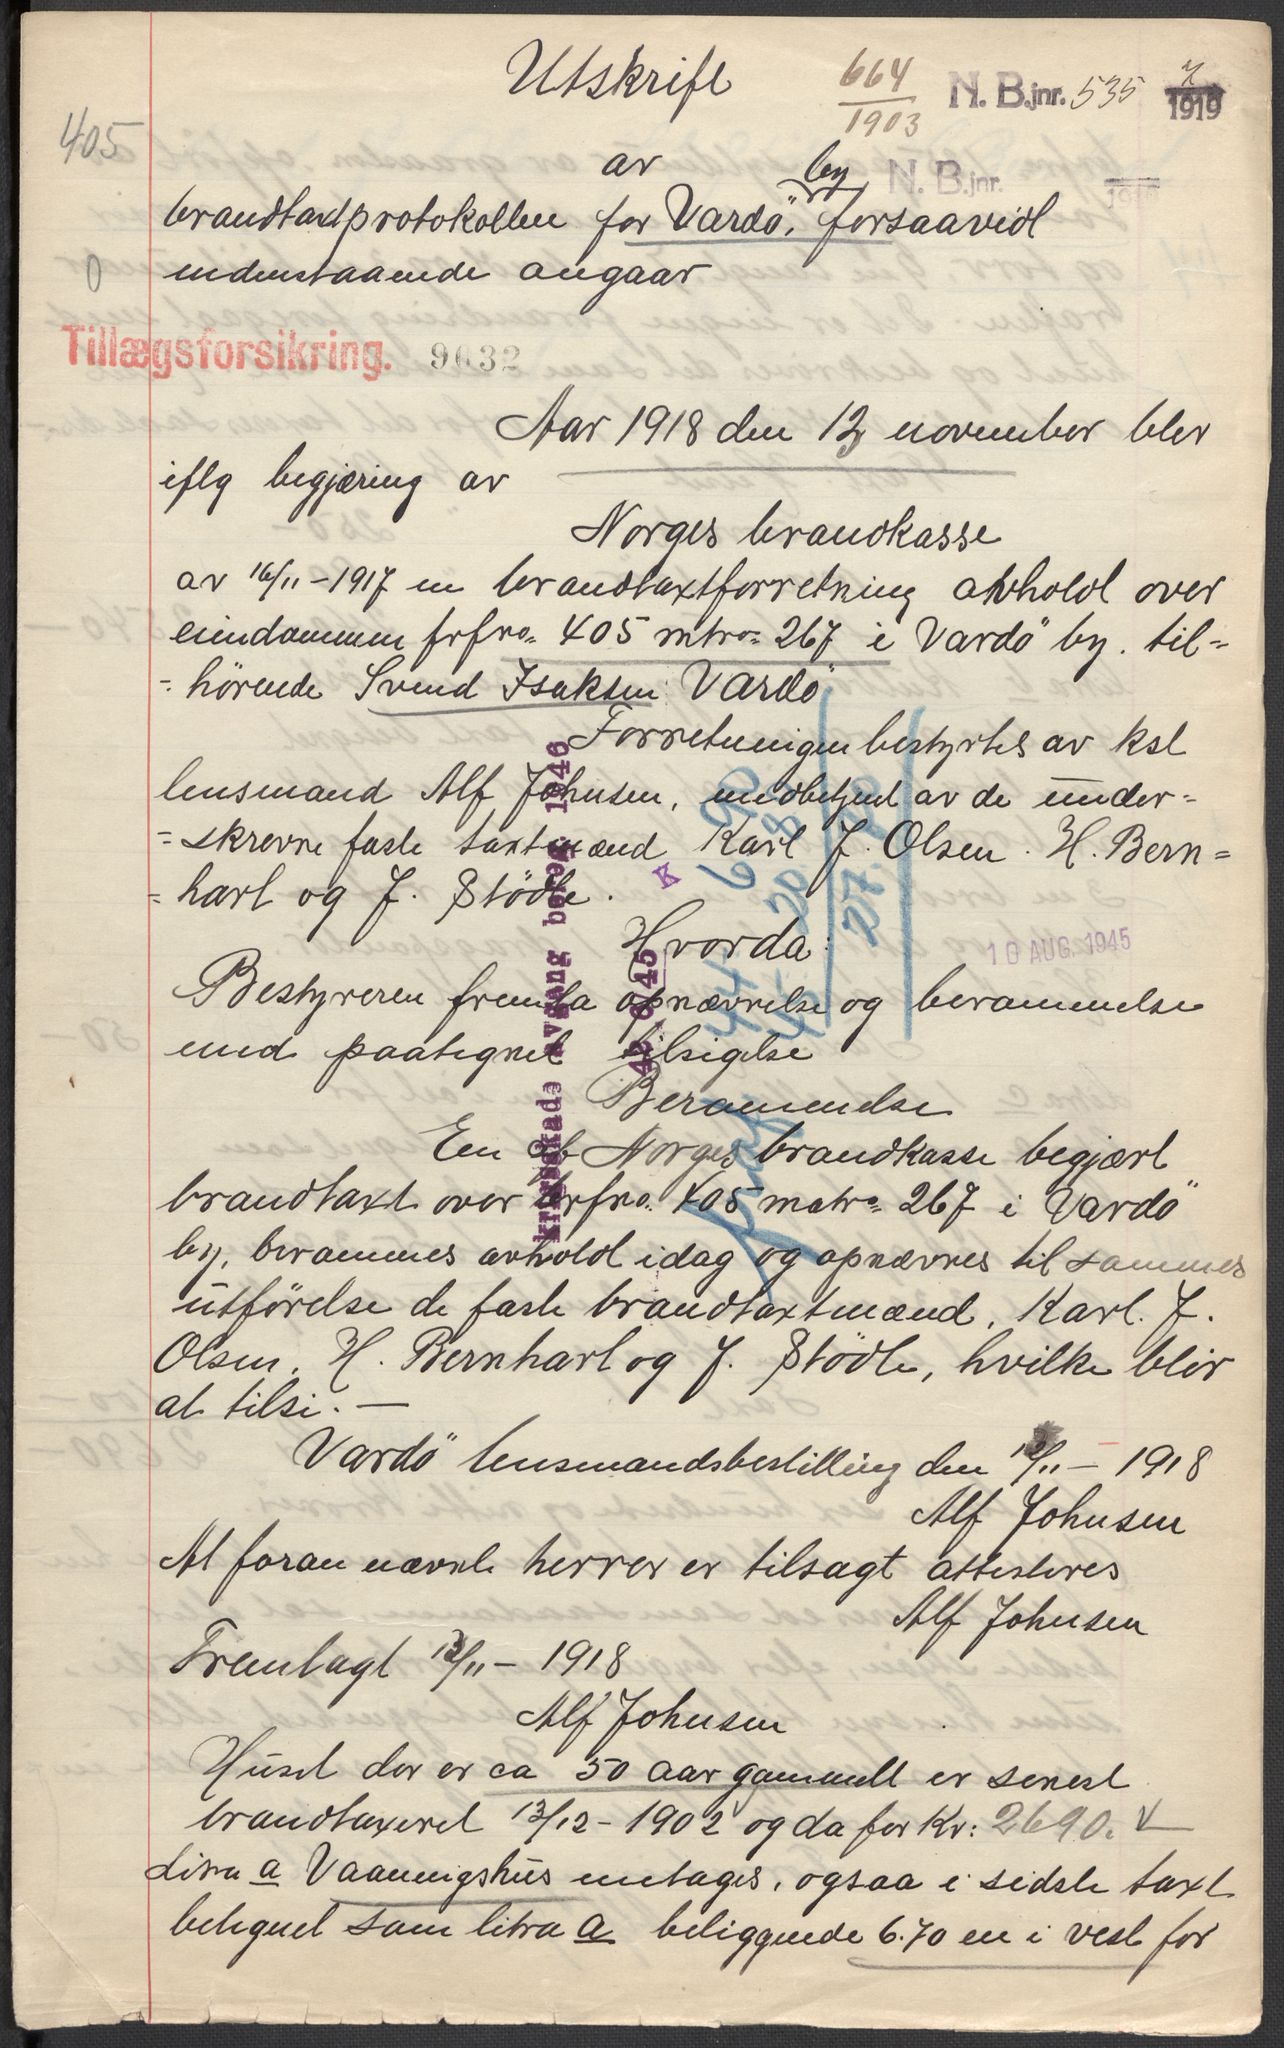 Utskrift
664
1903
N. B. jnr. 535 1919
405
av
by
N. B. jnr.
brandtaxtprotokollen for Vardö, forsaavidt
0 undenstaaende angaar
Tillægsforsikring. 9632
Aar 1918 den 12 november blev
iflg begjæring av
Norges brandkasse
av 16/11-1917 en brandtaxtforretning avholdt over
eiendommen brfno. 405 mtrn. 267 i Vardö by. til-
-hörende Svend Isaksen Vardö
Forretningen bestyrtes av kst
lensmand Alf Johnsen, medbetjent av de under-
-skrevne faste taxtmænd Karl J. Olsen. H. Bern-
-hart og J. Stödle.
Hvorda:
10 AUG. 1945
Bestyreren fremla opnævnelse og berammelse
med paategnet tilsigelse
Berammelse
En af Norges brandkasse begjært
brandtaxt over brfno. 405 matrn. 267 i Vardö
by, berammes avholdt idag og opnævnes til sammes
utförelse de faste brandtaxtmænd, Karl. J.
Olsen. H. Bernhart og J. Stödle, hvilke blir
at tilsi. —
Vardö lensmandsbestilling den 12/11 - 1918
Alf Johnsen
At foran nævnte herrer er tilsagt attesteres
Alf Johnsen
Fremlagt 12/11 - 1918
Alf Johnsen
Huset der er ca 50 aar gammelt er senest
brandtaxeret 13/12 - 1902 og da for Kr: 2690.
Litra a Vaaningshus undtages, ogsaa i sidste taxt
betegnet som litra a beliggende 6.70 m i vest for
krigsskade avgang bereg 1946
42 6/45
K